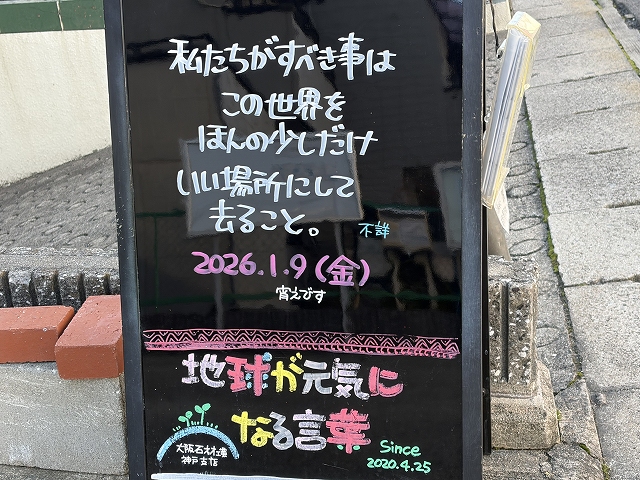 私たちがすべき事は
この世界を
ほんの少しだけ
いい場所にして
去ること。
不詳
2026.1.9(金)
宵えびす
地球が元気に
なる言葉
大阪石材工業
神戸支店
Since
2020.4.25